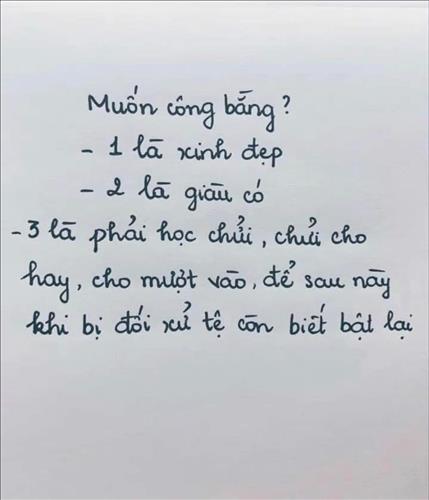 Muốn công bằng?
- 1 là xinh đẹp
- 2 là giàu có
- 3 là phải học chửi, chửi cho
hay, cho mượt vào, để sau này
khi bị đối xử tệ còn biết bật lại